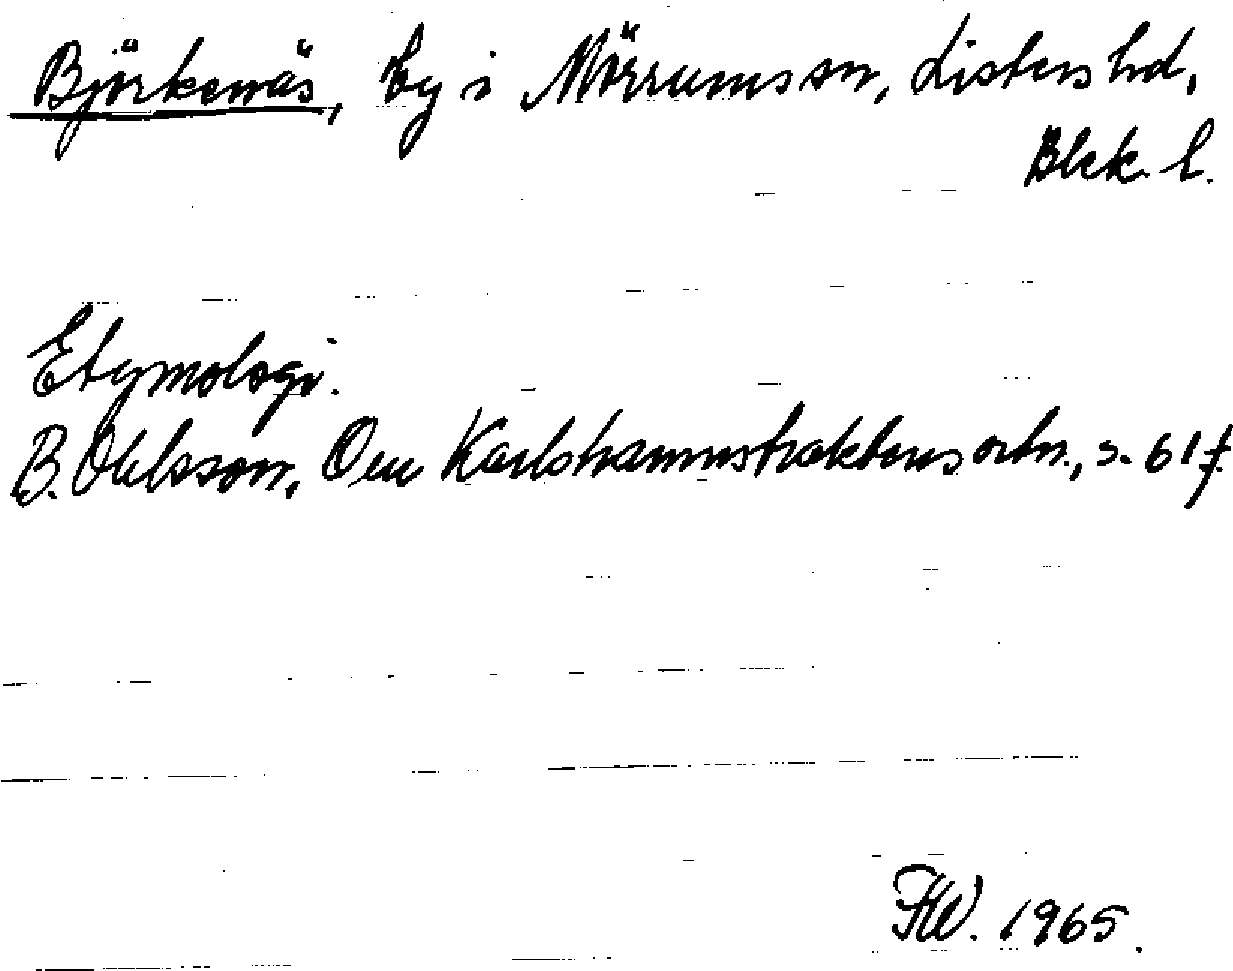 Björkenäs, by i Mörrums sn, Listers hd,
Blek. l.
Etymologi.
B. Ohlsson, Om Karlshamnstraktens ortn., s. 61 f.
FW. 1965.